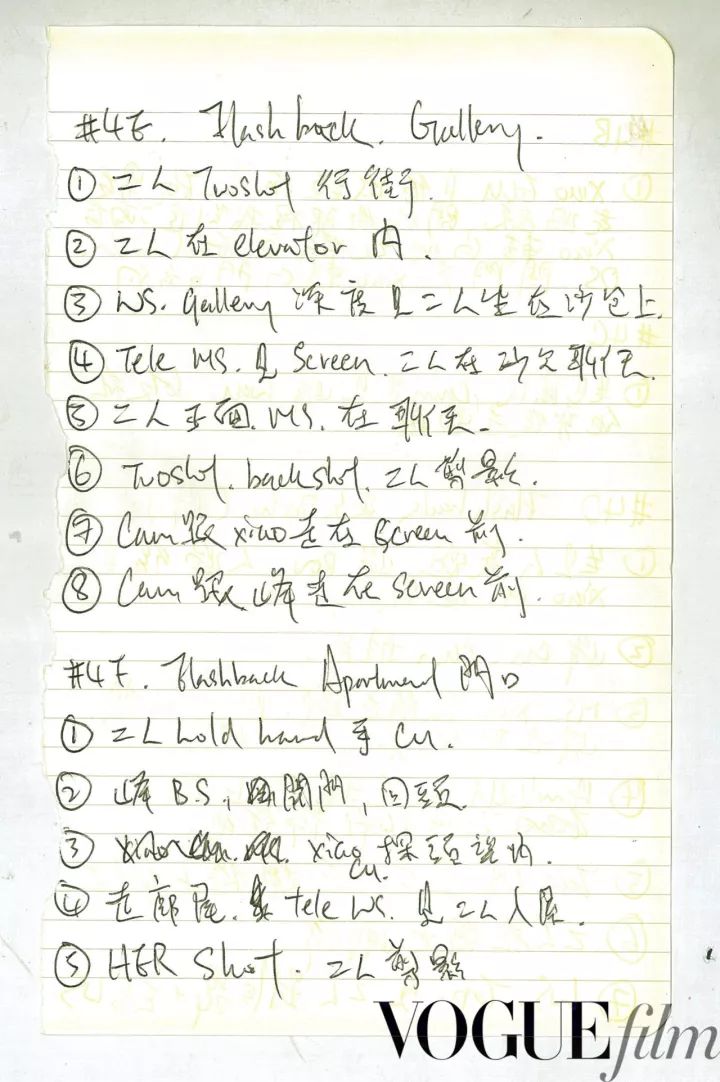 #4E. Flashback. Gallery.
① 二人 Twoshot 行街.
② 二人在 elevator 內.
③ WS. Gallery 深度見二人坐在沙发上.
④ Tele MS. 見 Screen. 二人在沙发聊天.
⑤ 二人正面. MS. 在聊天.
⑥ Twoshot. backshot. 二人剪影.
⑦ Cam 跟 xiao 走在 Screen 前.
⑧ Cam 跟 峰 走在 Screen 前.
#4F. Flashback Apartment 門口
① 二人 hold hand 手 CU.
② 峰 B.S, 開門, 回頭.
③ xiao 探頭 CU.
④ 走廊尾. tele WS. 見二人入屋.
⑤ HER Shot. 二人剪影
VOGUEfilm